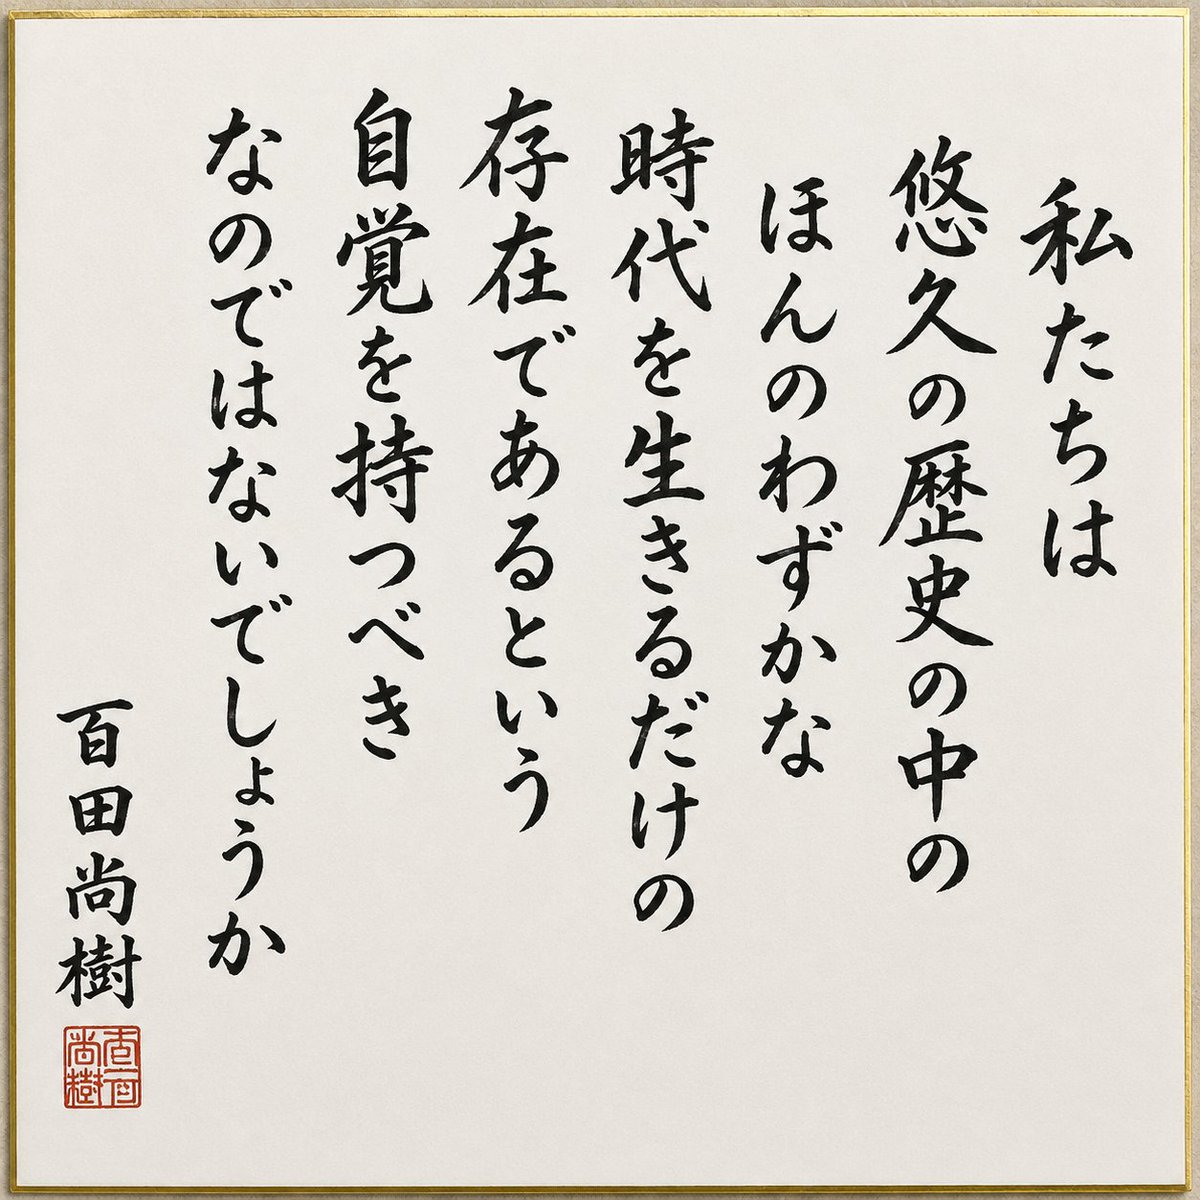 私たちは
悠久の歴史の中の
ほんのわずかな
時代を生きるだけの
存在であるという
自覚を持つべき
なのではないでしょうか
百田尚樹